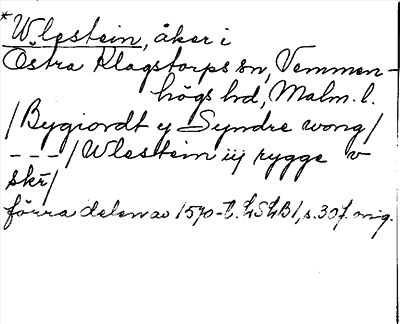 *Wlestein, åker i
Östra Klagstorps sn, Vemmen-
högs hd, Malm. l.
/Bygiordt y Syndre wong/
---/Wlestein iij rygge v
skr/
förra delen av 1570-t. LSLB1, s. 307. orig.